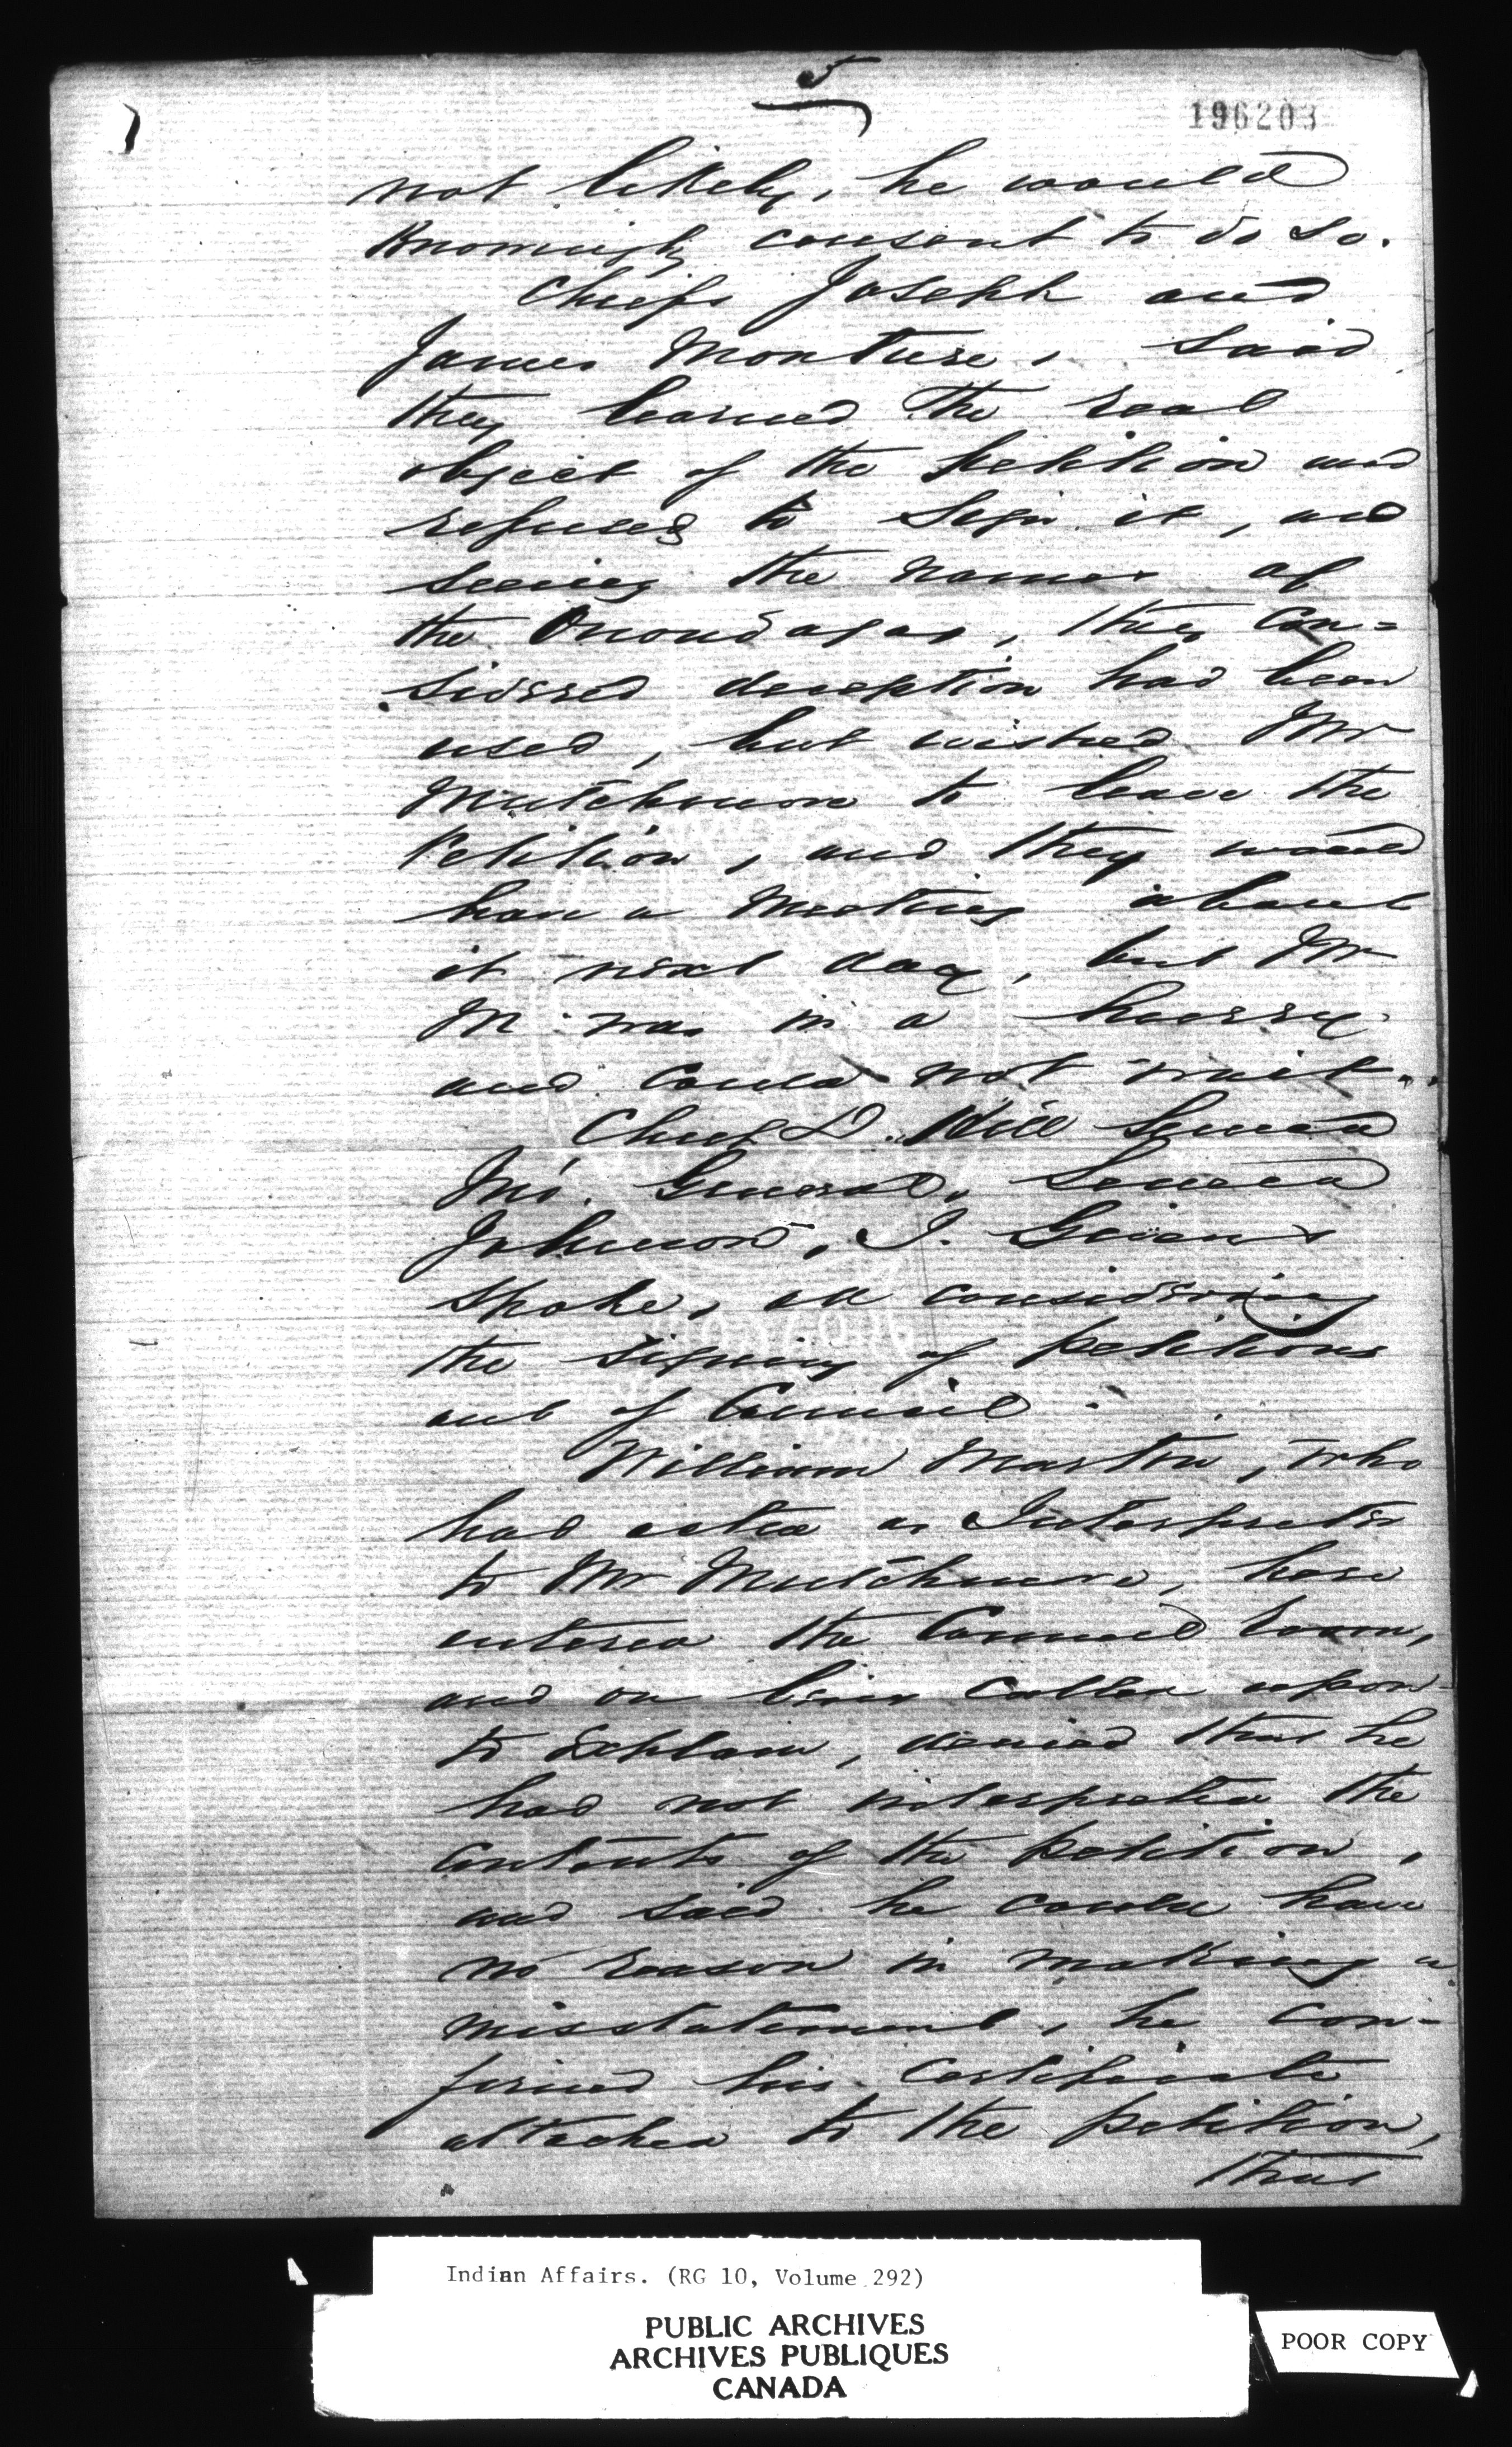 5
196203
not likely, he would
Knowingly consent to do so.
Chiefs Joseph and
James Monture, said
they learned the real
object of the petition and
refused to sign it, and
seeing the names of
the Onondagas, they con=
sidered deception had been
used, but wished Mr
Mutchmore to leave the
Petition, and they would
have a meeting about
it next day, but Mr
M. was in a hurry
and could not wait.
Chief D. Hill Seneca
Jno. General, Seneca
Johnson, I. Givens
spoke, all considering
the signing of petitions
out of Council.
William Martin, who
had acted as Interpreter
to Mr Mutchmore, here
entered the Council room,
and on being called upon
to Explain, denied that he
had not interpreted the
contents of the petition,
and said he could have
no reason in making a
misstatement, he con-
firmed his certificate
attached to the petition,
that
Indian Affairs. (RG 10, Volume 292)
PUBLIC ARCHIVES
ARCHIVES PUBLIQUES
CANADA
POOR COPY